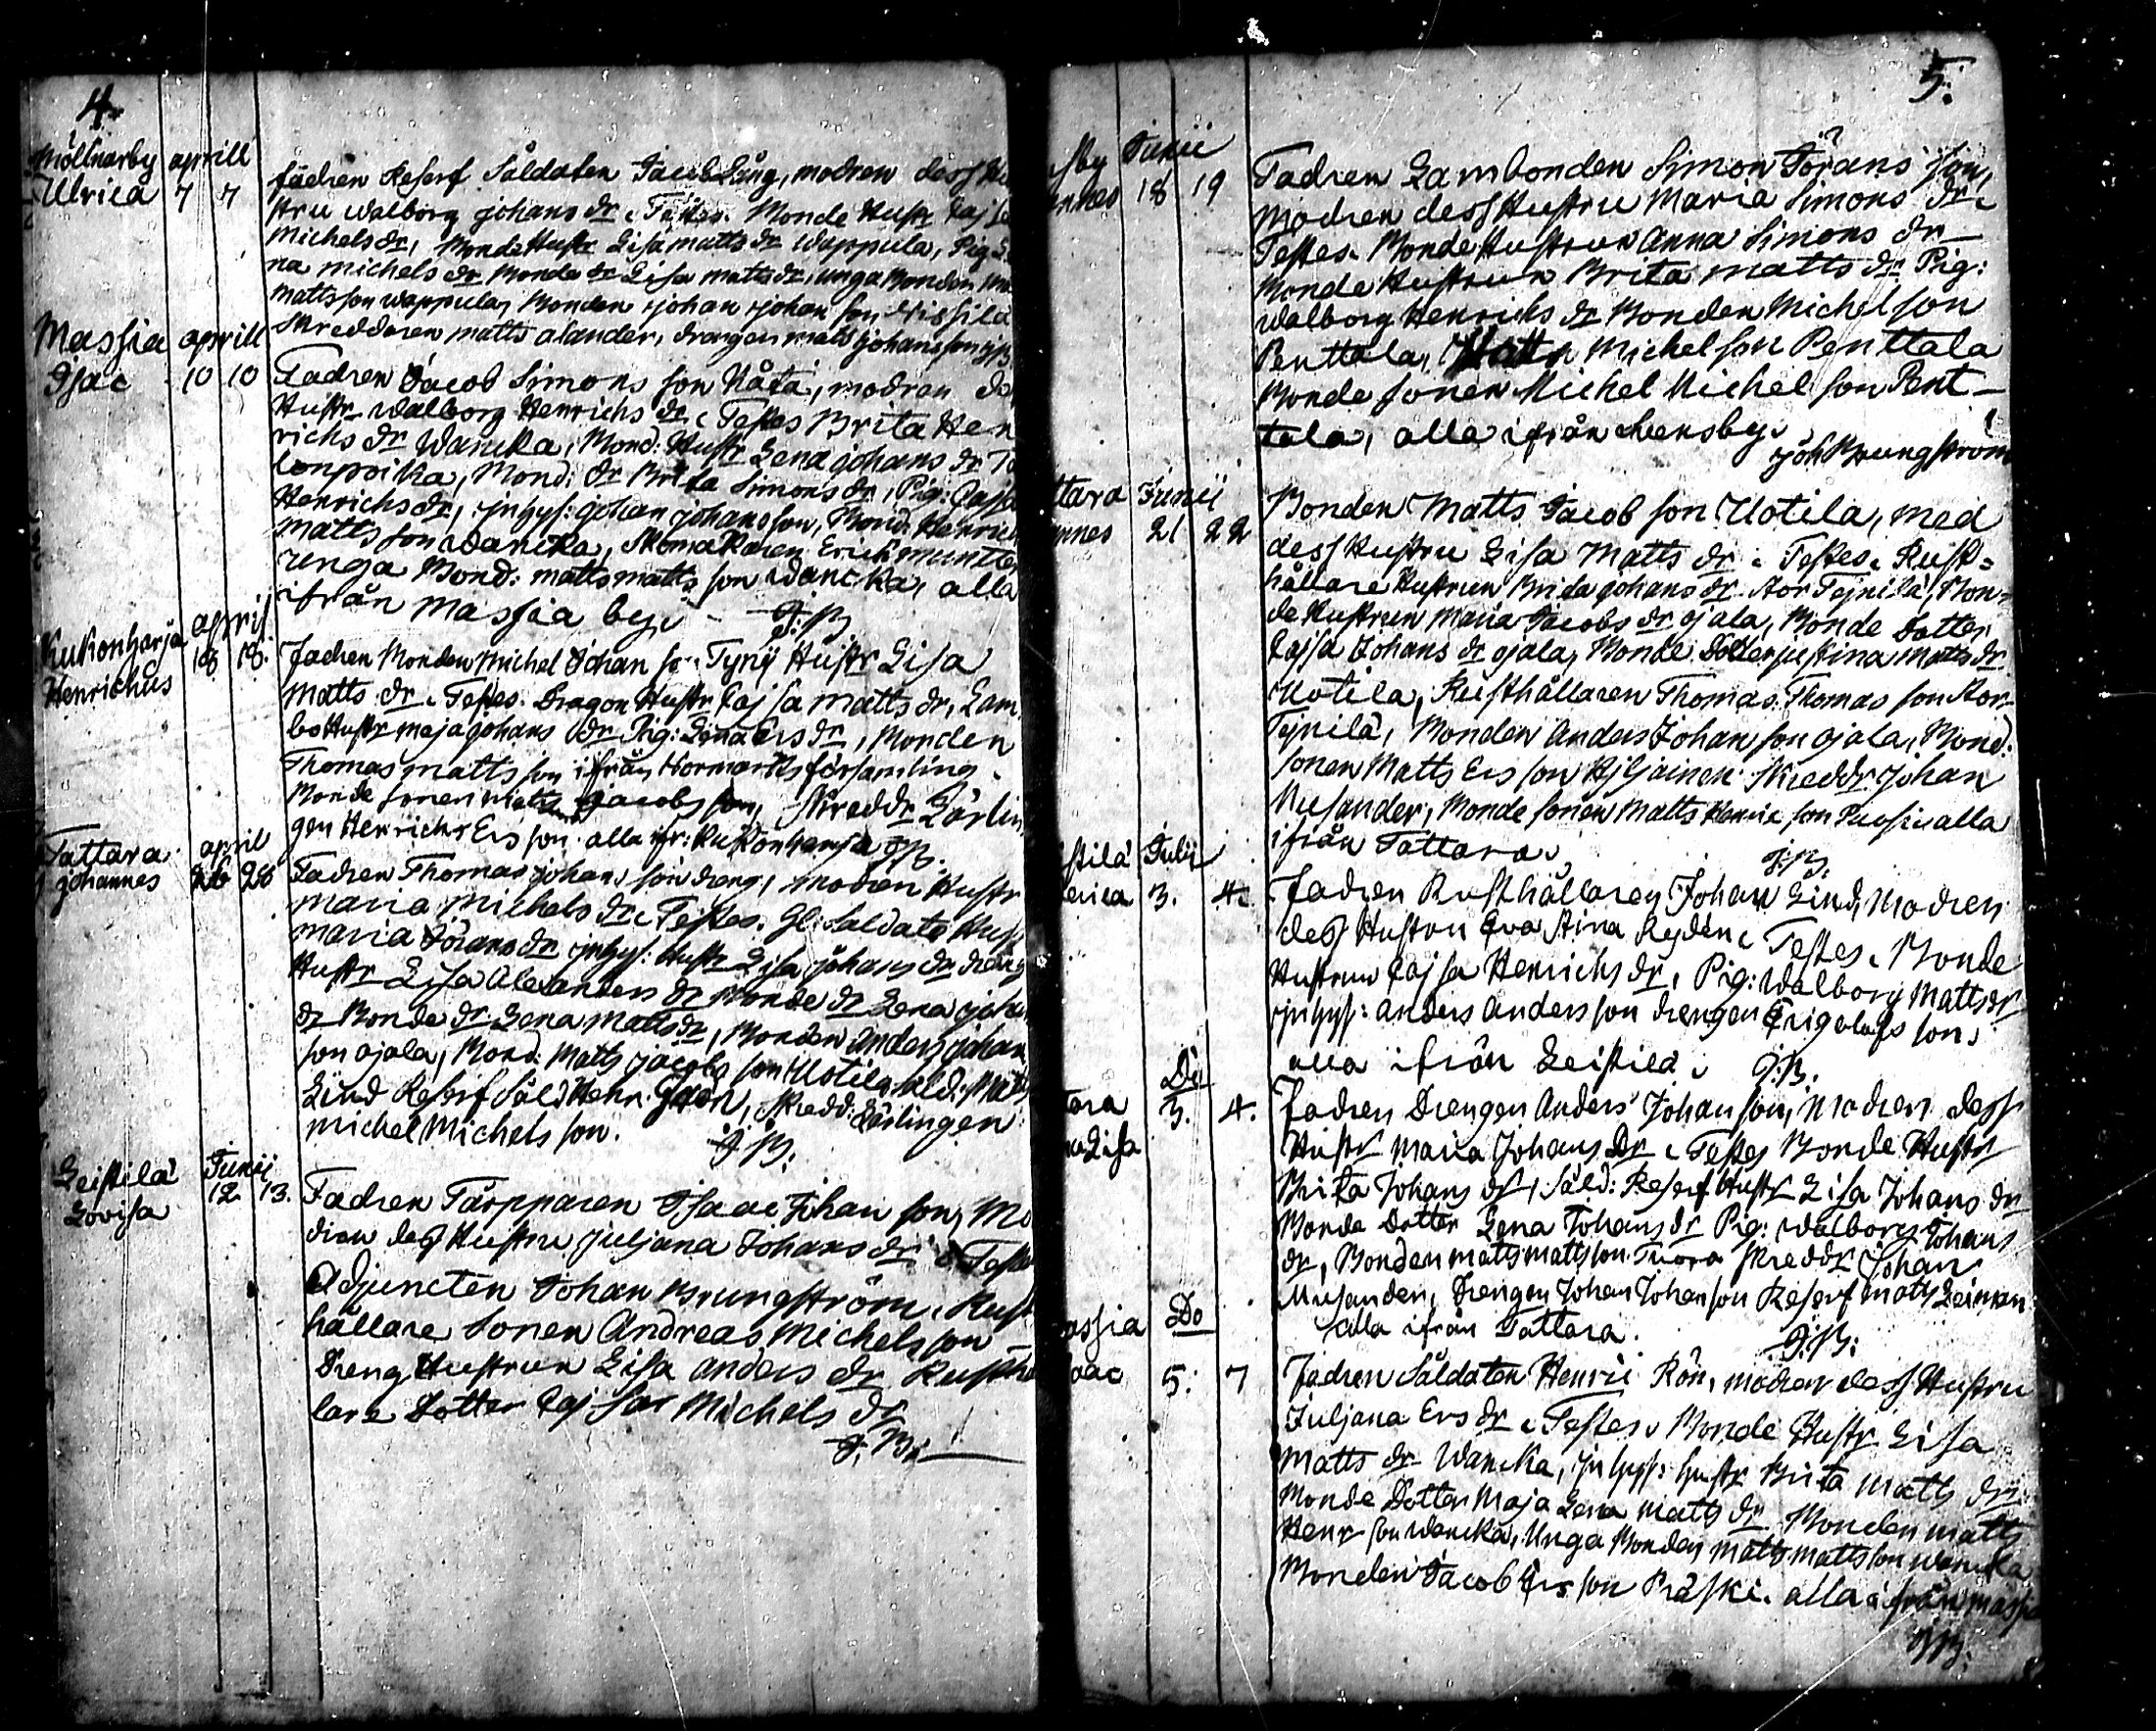 4.
Möllnarby aprill
Ulrica 7 7
fadren Reserf Såldaten Jacob Lång, modren dess Hu
stru walborg johans dr. Testes. Monde Hustr Cajsa
michels dr, Monde Hustr Lisa matts dr wappula, Pig:
na michels dr Monde dr Lisa matts dr, unga Monden
mattsson wappula, Monden johan johan son
Skreddaren matts alander, drengen matts johansson JB
Massia aprill
Isac 10 10
Fadren Jacob Simons son Nåta, modren de
Hustr walborg Henrichs dr. Testes Brita Hen
richs dr Wancka, Mond: Hustr Lena johans dr
lonpoika, Mond: dr Brita Simons dr, Pig: Cajsa
Henrichs dr, inhys: johan johansson, Mond: Henrich
matts son wancka, Skomakaren Erick munter
unga Mond: matts matts son wancka, alla
ifrån massia by. J:B
Kukonharja april
Henrichus 18 18.
Fadren Monden Michel Johan son Tyrij Hustr Lisa
Matts dr. Testes. Dragon Hustr Cajsa matts dr, Lam
bo Hustr maja johans dr Pig: Lena Ers dr, Monden
Thomas matts son ifrån Normarks församling.
Monde sonen matts jacobs son, Skreddr Lärlin
gen Henrichs Ers son. alla ifr: Kukonharja JB.
Tattara april
johannes 26 28
Fadren Thomas johans son dreng, modren Hustr
maria michels dr. Testes. Gl: Saldats Hust
maria Jörans dr inhys: Hustr Lisa johans dr dreng
Hustr Lisa Alexanders dr Monde dr Lena joha
dr Bonde dr Lena Matts dr, Bonden Anders johan
son ojala, Mond: Matts jacobs son Uotila, sald: Matts
Lind Reserf Såld Henr: , Skredd: Lärlingen
michel Michels son. J:B:
Leistilä Junij
Lovisa 12 13.
Fadren Tårpparen Isaac Johan son, Mo
dren dess Hustru juljana Johans dr. Teste
Adjuncten Johan Brungström, Rust
hållare Sonen Andreas Michels son
Dreng Hustrun Lisa anders dr Rusthå
lare Dotter Cajsa Michels dr
J:B:
5.
sby Junii
annes 18 19
Fadren Lambonden Simon Jörans son,
Modren dess Hustru Maria Simons dr.
Testes. Monde Hustrun Anna Simons dr
Monde Hustrun Brita matts dr Pig:
walborg Henrichs dr Bonden Michelson
Penttala, Matts Michelson Penttala
Bonde sonen Michel Michelson Pent-
tala, alla ifrån Lensby.
joh Brungström
ttara Junii
annes 21 22
Bonden Matts Jacob son Uotila, med
dess Hustru Lisa Matts dr. Testes. Rust-
hållare Hustrun Brida johans dr Stor Tejnilä, Bon-
de Hustrun Maria Jacobs dr ojala, Bonde Dotter
Cajsa Johans dr ojala, Bonde Dotter justina Matts dr
Uotila, Rusthållaren Thomas Thomas son Stor
Tejnilä, Bonden Anders Johan son ojala, Bond:
sonen Matts Ers son Hiljainen Skreddr Johan
Musander, Monde sonen Matts Henric son alla
ifrån Tattara. J:B.
istilä Julii
lerica 3. 4.
Fadren Rusthållaren Johan Lind, Modren
dess Hustru Eva Stina Rydén. Testes. Bonde
Hustrun Cajsa Henrichs dr, Pig: Walborg Matts dr
inhys: anders anders son drengen Erig olofs son,
alla ifrån Leistilä. J:B.
Do
tara 3. 4.
na Lisa
Fadren Drengen Anders Johan son, Modren dess
Hustr Maria Johans Dr. Testes Bonde Hustr
Brita Johans dr, Såld: Reserf Hustr Lisa Johans dr
Bonde Dotter Lena Johans dr Pig: walborg Johans
dr, Bonden matts mattson Tuora Skreddr Johan
Musander, Drengen Johan Johanson Reserf matts Leinman
alla ifrån Tattara. J:B:
assia Do
saac 5. 7
Fadren Såldaten Henric Rön, modren dess Hustru
Juljana Ers dr. Testes. Monde Hustr Lisa
Matts dr Wancka, inhys: Hustr Brita Matts dr
Monde Dotter Maja Lena matts dr Bonden matts
Henr son wancka, Unga Bonden matts mattsson wancka
Bonden Jacob Ers son Präski. alla ifrån massia
JB: